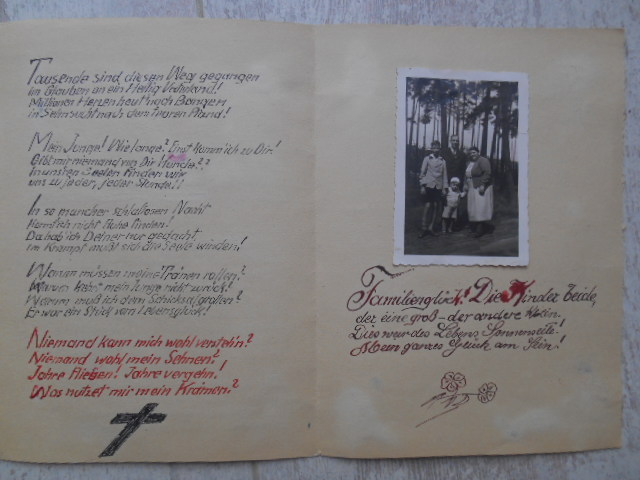 Tausende sind diesen Weg gegangen
im Glauben an ein heilig Vaterland!
Millionen Herzen heut nach Bangen
in Sehnsucht nach dem teuren Pfand!
Mein Junge! Wie lange? Einst komm ich zu Dir!
Gibt mir niemand von Dir Kunde??
In unsren Seelen finden wir
uns zu jeder, jeder Stunde!!
In so mancher schlaflosen Nacht
Kannt ich nicht Ruhe finden!
Da hab ich Deiner nur gedacht
im Krampf mußt sich die Seele winden!
Warum müssen meine Tränen rollen?
Warum kehrt mein Junge nicht zurück!
Warum muß ich dem Schicksal grollen?
Er war ein Stück von Lebensglück!
Niemand kann mich wohl verstehn?
Niemand wohl mein Sehnen?
Jahre fließen! Jahre vergehn!
Was nutzet mir mein Grämen?
Familienglück! Die Kinder beide,
der eine groß - der andere klein.
Dies war des Lebens Sonnenseite!
Mein ganzes Glück am Sein!